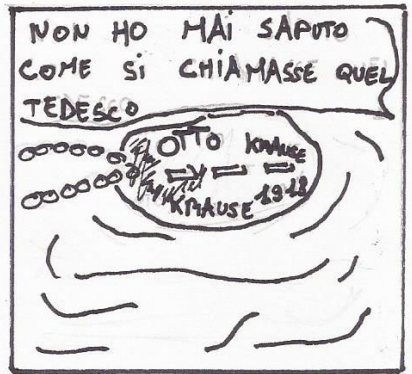 NON HO MAI SAPUTO
COME SI CHIAMASSE QUEL
TEDESCO
OTTO KRAUSE
KRAUSE 1918